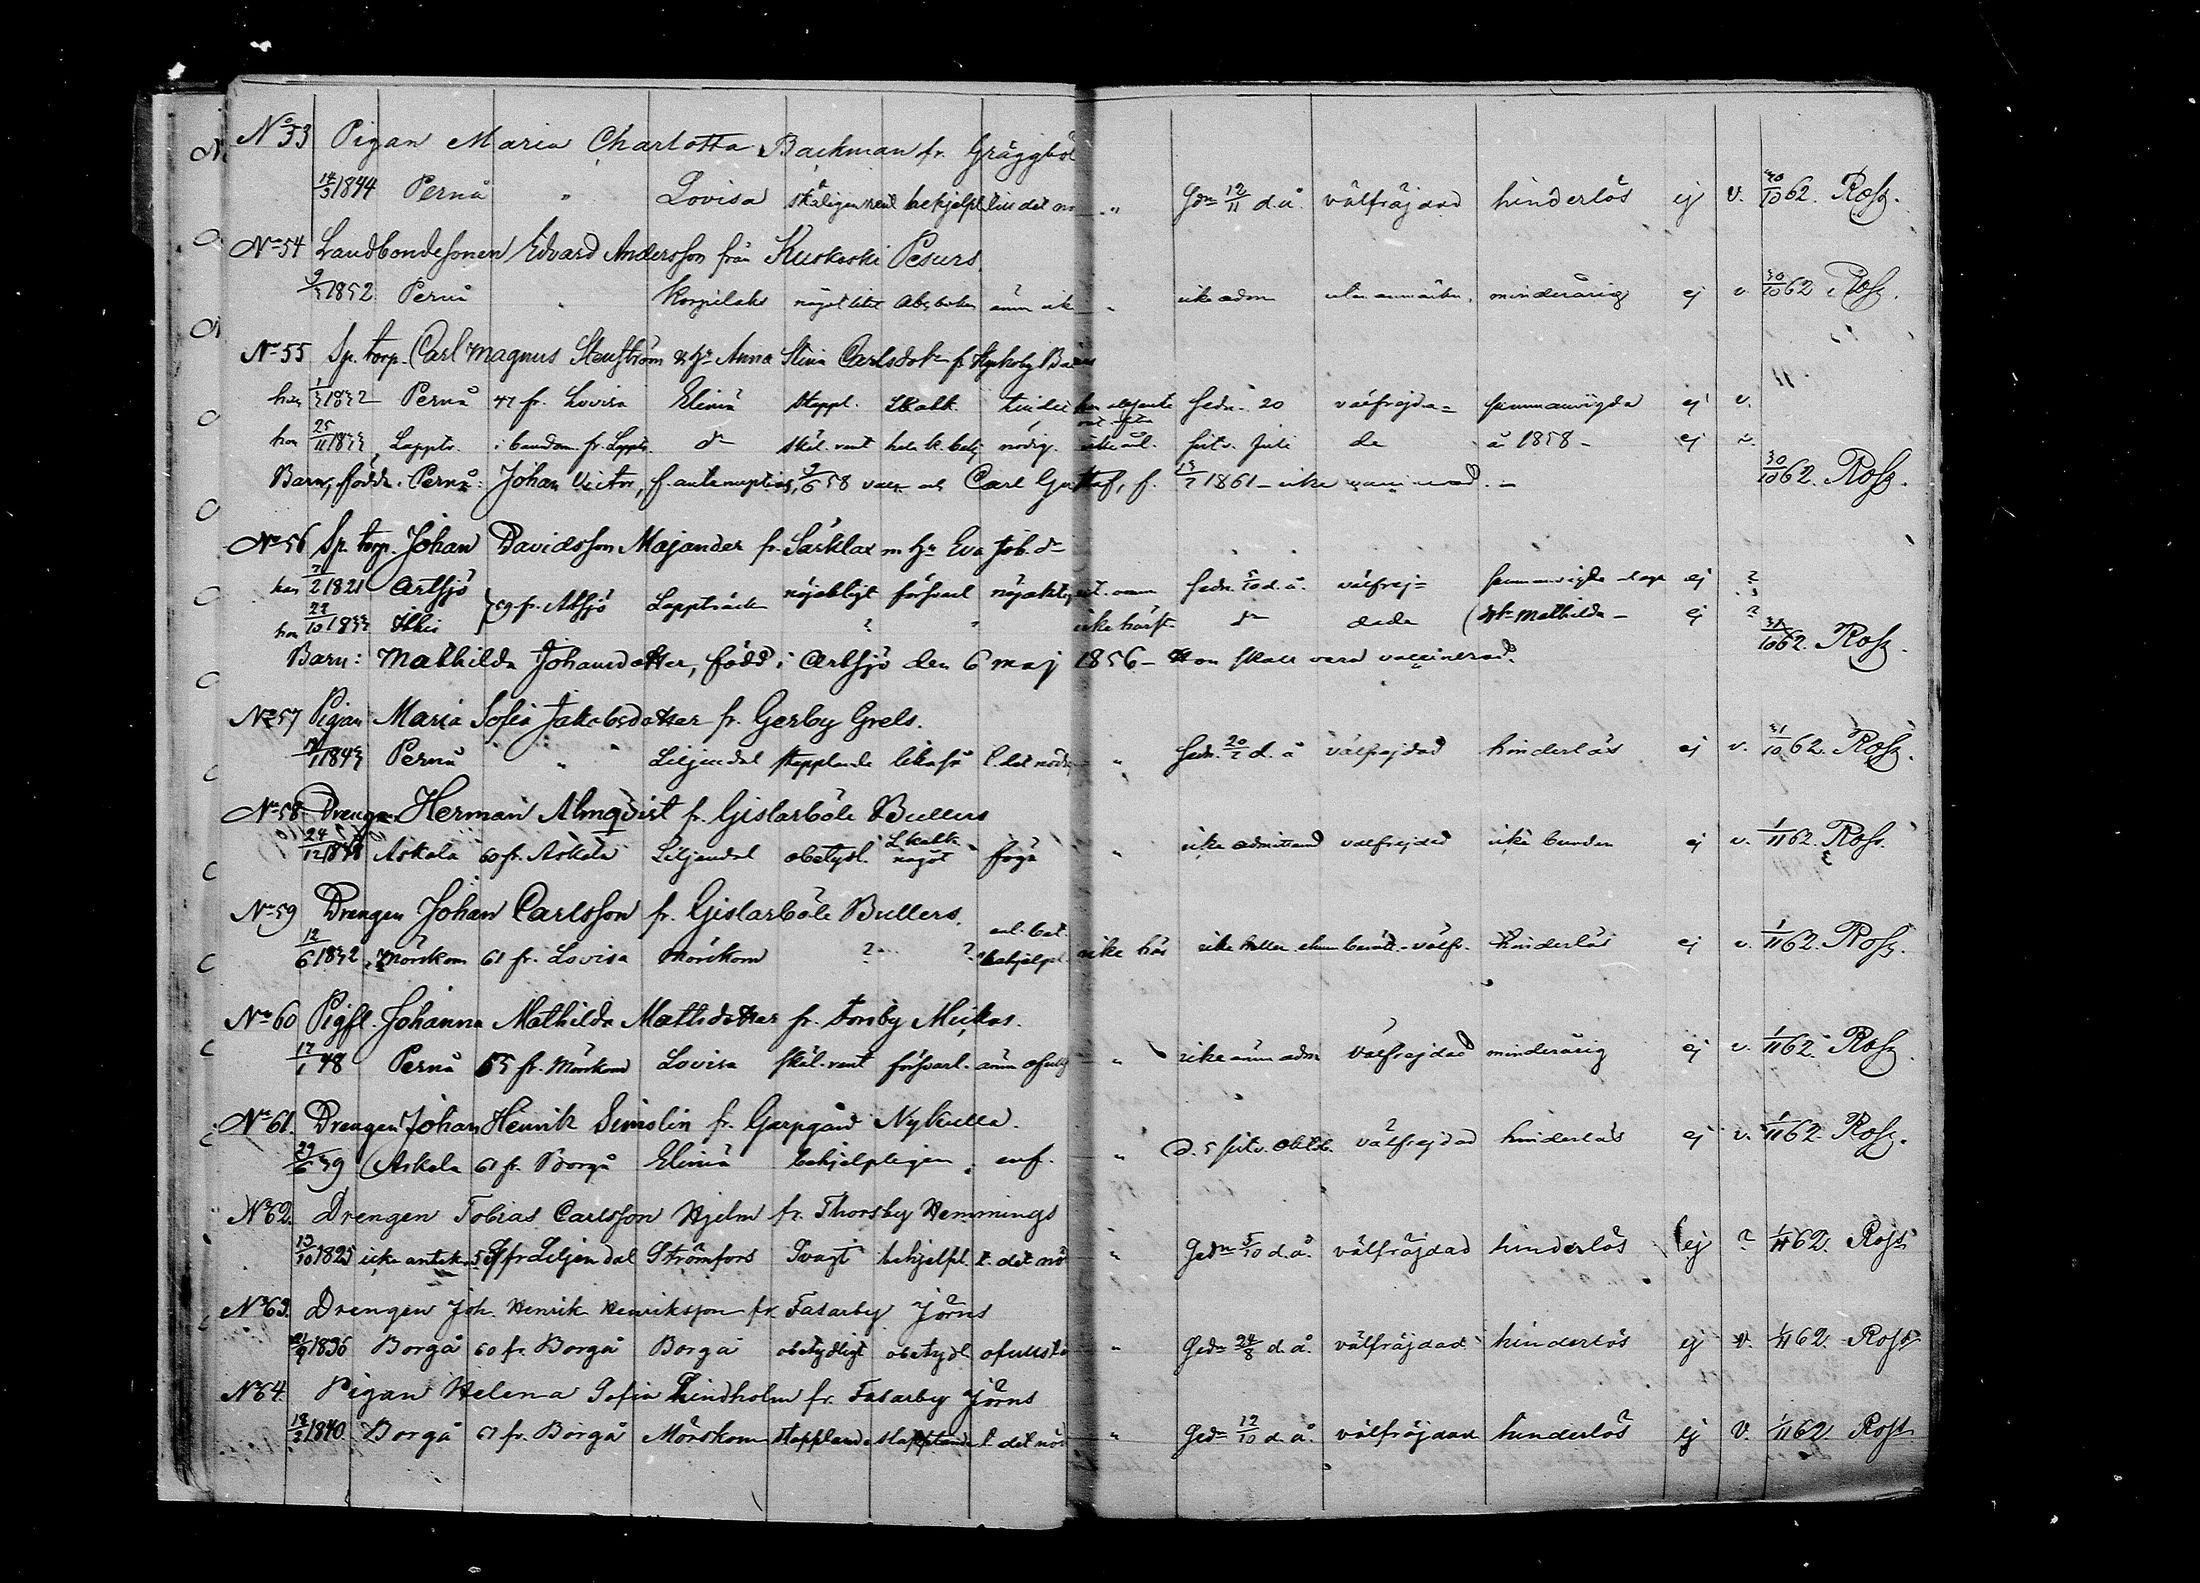 No 53 Pigan Maria Charlotta Backman fr. Gräggböl
14/3 1844 Pernå " Lovisa skäligen rent behjelpl. till det nö " Gdn 12/11 d.å. välfräjdad hinderlös ej v. 30/10 62. Rosz.
No 54 Landbondesonen Edvard Andersson från Kuskoski Pesurs.
9/3 1852 Pernå " Korpilaks något litet Abcboken ännu icke " icke adm utan anmärkn. minderårig ej v. 30/10 62. Rosz.
No 55 Sp. torp. Carl Magnus Stenström & hr Anna Stina Carlsdotr fr
han 1832 Pernå 47 fr. Lovisa Elimä stappl. Lkatk. Gedn. 20 välfrejda= sammanvigda ej v.
hon 25/11 1833 Lappts. i barndom. fr. Lappts. do skäl. rent nödig. sistv. Juli de år 1858 - ej v.
Barn, födde i Pernå: Johan Victor, f. antenuptias, 9/6 58 vacc. och Carl Gustaf, f. 13/7 1861 - icke vaccinerad. - 30/10 62. Rosz.
No 56 Sp. torp. Johan Davidsson Majander fr. Särklax m. hr Eva Job. dr
han 7/2 1821 Artsjö } 59 fr. Artsjö Lappträsk nöjaktigt försvarl nöjaktigt Gedn. 5/10 d.å. välfrej= sammanvigde ej ?
hon 22/10 1833 Ithis ? " icke hörst. do dede (dtr Mathilda - ej ? 31/10 62. Rosz.
Barn: Mathilda Johansdotter, född i Artsjö den 6 maj 1856 - Hon skall vara vaccinerad.
No 57 Pigan Maria Sofia Jakobsdotter fr. Gerby Grels.
1843 Pernå " " Liljendal stapplande likaså t. det nödig " Gedn. 20/7 d.å välfrejdad hinderlös ej v. 31/10 62. Rosz.
No 58 Drengen Herman Almqvist fr. Gislarböle Bullers
24/12 1848 Askola 60 fr. Askola Liljendal obetydl. Lkatk. något föga " icke admitterad välfrejdad icke bunden ej v. 1/11 62. Rosz.
No 59 Drengen Johan Carlsson fr. Gislarböle Bullers.
12/6 1832 Mörskom 61 fr. Lovisa Mörskom ? ? enl. bet. behjelpl. icke hör icke heller välfr. hinderlös ej v. 1/11 62. Rosz.
No 60 Pigfl. Johanna Mathilda Mattsdotter fr. Torsby Mickas.
17/1 48 Pernå 55 fr. Mörskom Lovisa skäl. rent försvarl. ännu ofulls " icke ännu adm välfrejdad minderårig ej v. 1/11 62. Rosz.
No 61. Drengen Johan Henrik Simolin fr. Garpgård Nykulla.
29/6 39 Askola 61 fr. Borgå Elimä behjelpligen " enf. " d. 5 sistv. Oktob. välfrejdad hinderlös ej v. 1/11 62. Rosz.
No 62. Drengen Tobias Carlsson Hjelm fr. Thorsby Hemmings
13/10 1825 icke anteckn. 59 fr Liljendal Strömfors Svagt behjelpl. t. det nö " Gedn 5/10 d.å. välfräjdad hinderlös ej ? 1/11 62. Rosz
No 63. Drengen Joh. Henrik Henriksson fr. Fasarby Jörns
21/9 1836 Borgå 60 fr. Borgå Borgå obetydligt obetydl. ofullstä " Gedn 24/8 d.å. välfräjdad hinderlös ej v. 1/11 62. Rosz
No 64. Pigan Helena Sofia Lindholm fr. Fasarby Jörns
18/3 1840 Borgå 61 fr. Borgå Mörskom stapplande stapplande t. det nöd " Gedn 12/10 d.å. välfräjdad hinderlös ej v. 1/11 62 Rosz